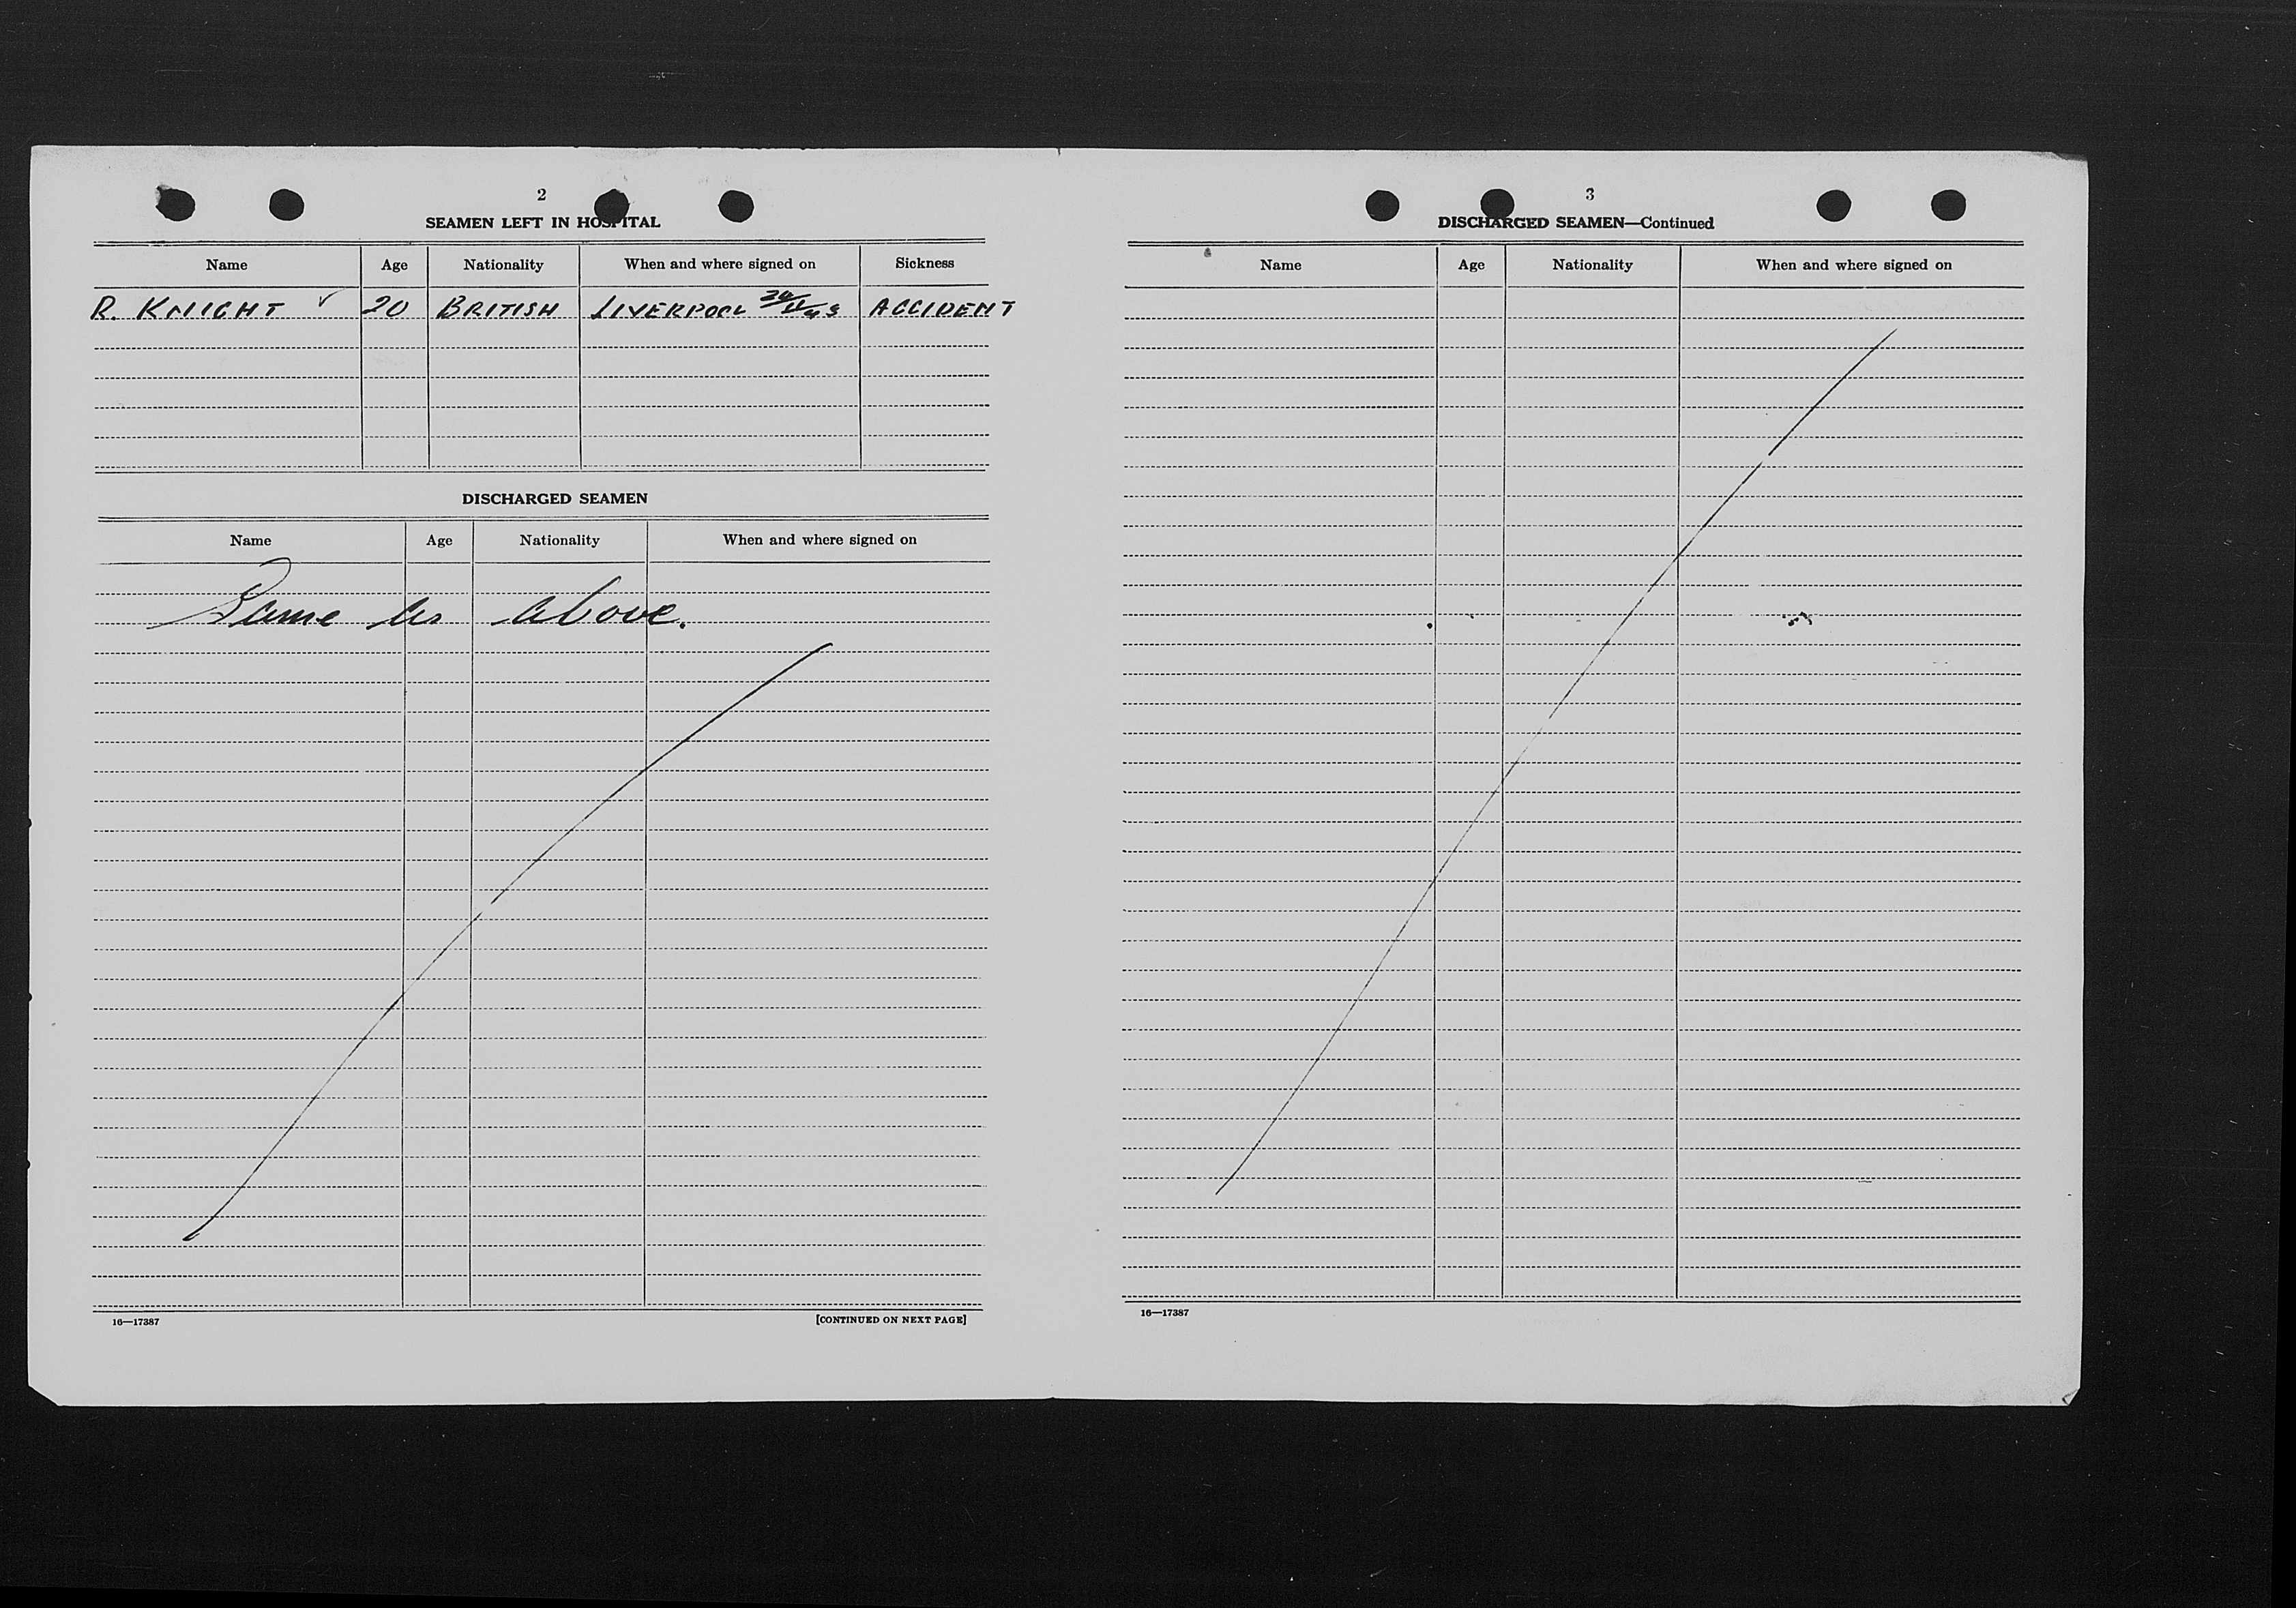 2
SEAMEN LEFT IN HOSPITAL
Name Age Nationality When and where signed on Sickness
R. KNIGHT ✓ 20 BRITISH LIVERPOOL ACCIDENT
DISCHARGED SEAMEN
Name Age Nationality When and where signed on
Same as above.
16—17387 [CONTINUED ON NEXT PAGE]
3
DISCHARGED SEAMEN—Continued
Name Age Nationality When and where signed on
16—17387